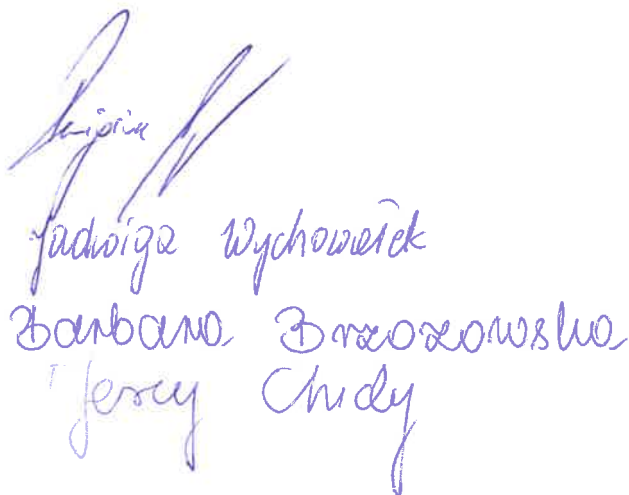 Jadwiga Wychowałek
Barbara Brzozowska
Jerzy Chudy